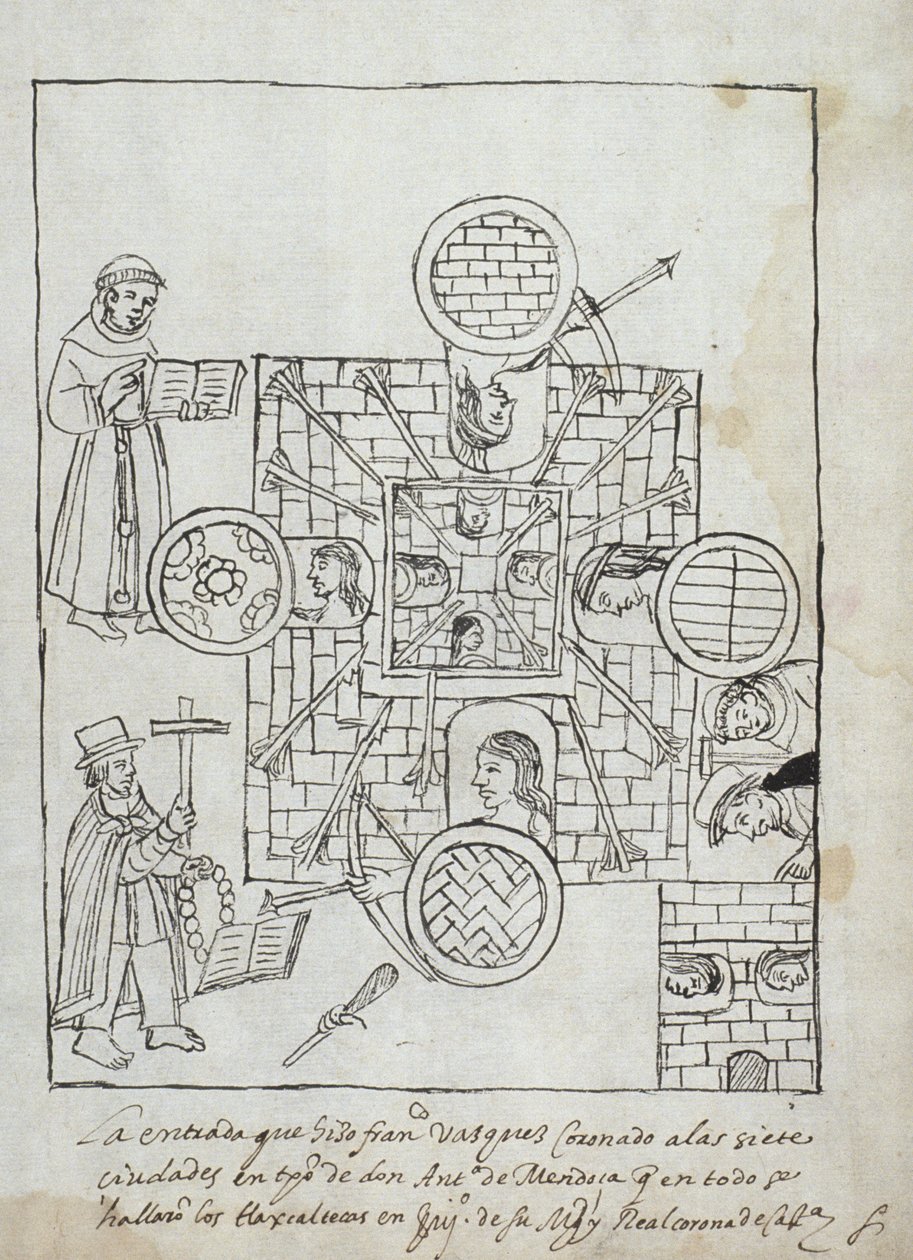 La entrada que hizo fran^co Vazquez Coronado a las siete
ciudades en tp^o de don Ant^o de Mendoça q̃ en todo se
hallarō los tlaxcaltecas en de su Mg^d y Real corona de Cast^a